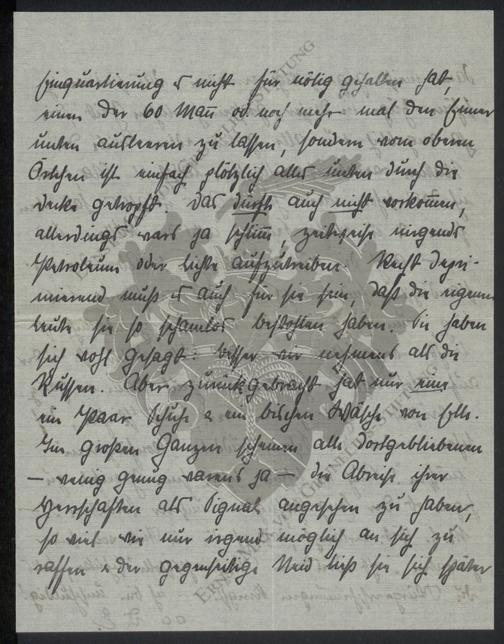 Einquartierung es nicht für nötig gehalten hat,
einen der 60 Mann od. noch mehr mal den Eimer
unten ausleeren zu lassen, sondern vom oberen
Örtchen ist einfach plötzlich alles unten durch die
Decke getropft. Das durfte auch nicht vorkommen,
allerdings wars ja schlimm, zeitweise nirgends
Petroleum oder Lichte aufzutreiben. Recht depri-
mierend muß es auch für sie sein, daß die eigenen
Leute sie so schamlos bestohlen haben. Sie haben
sich wohl gesagt: besser wir nehmens als die
Russen. Aber zurückgebracht hat nur eine
ein Paar Schuhe & ein bischen Wäsche von Elli.
Im großen Ganzen scheinen alle Dortgebliebenen
— wenig genug warens ja — die Abreise ihrer
Herrschaften als Signal angesehen zu haben,
so viel wie nur irgend möglich an sich zu
raffen & der gegenseitige Neid ließ sie sich später